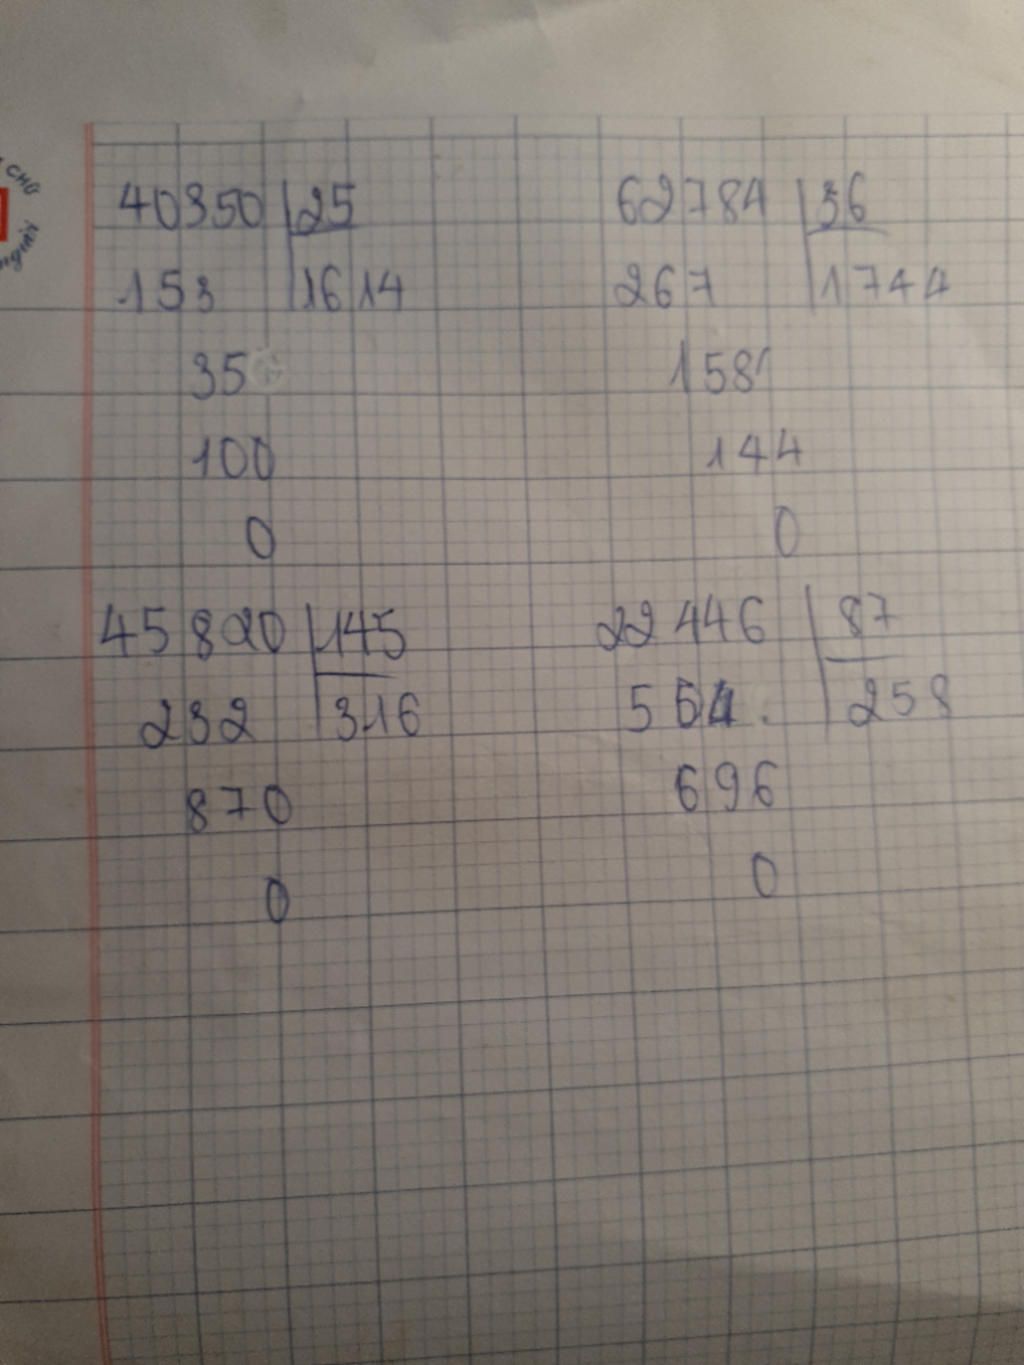 CHỮ
40350 25
153 1614
35
100
0
62784 36
267 1744
158
144
0
45820 145
232 316
870
0
22446 87
504 258
696
0